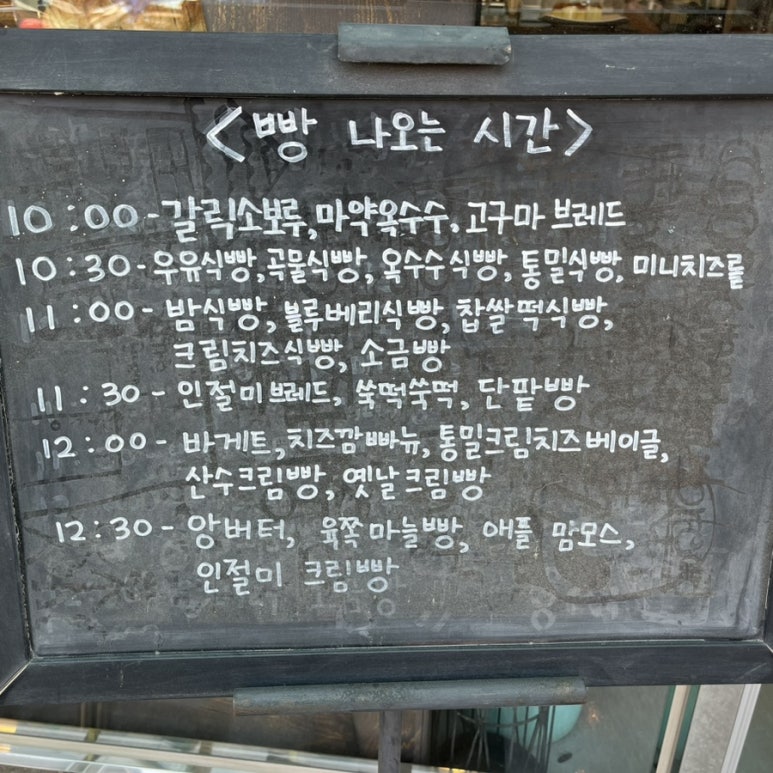 <빵 나오는 시간>
10:00-갈릭소보루,마약옥수수,고구마브레드
10:30-우유식빵,곡물식빵,옥수수식빵,통밀식빵,미니치즈롤
11:00-밤식빵,블루베리식빵,찹쌀떡식빵,
크림치즈식빵, 소금빵
11:30-인절미브레드, 쑥떡쑥떡, 단팥빵
12:00-바게트,치즈깜빠뉴,통밀크림치즈베이글,
산수크림빵,옛날크림빵
12:30-앙버터, 육쪽마늘빵, 애플 맘모스,
인절미 크림빵